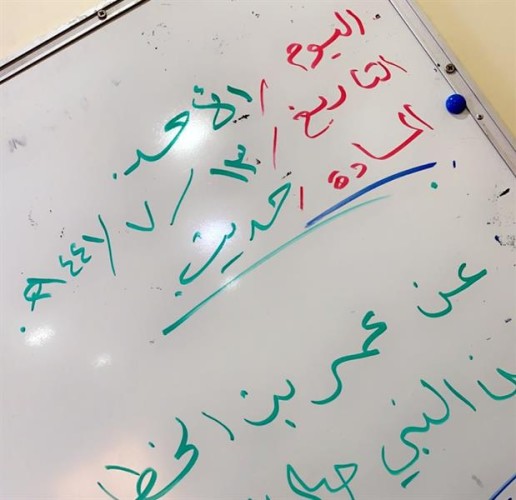 اليوم / الأحد
التاريخ / ١٣ / ٧ / ١٤٤١ هـ
المادة / حديث
عن عمر بن الخط
عن النبي